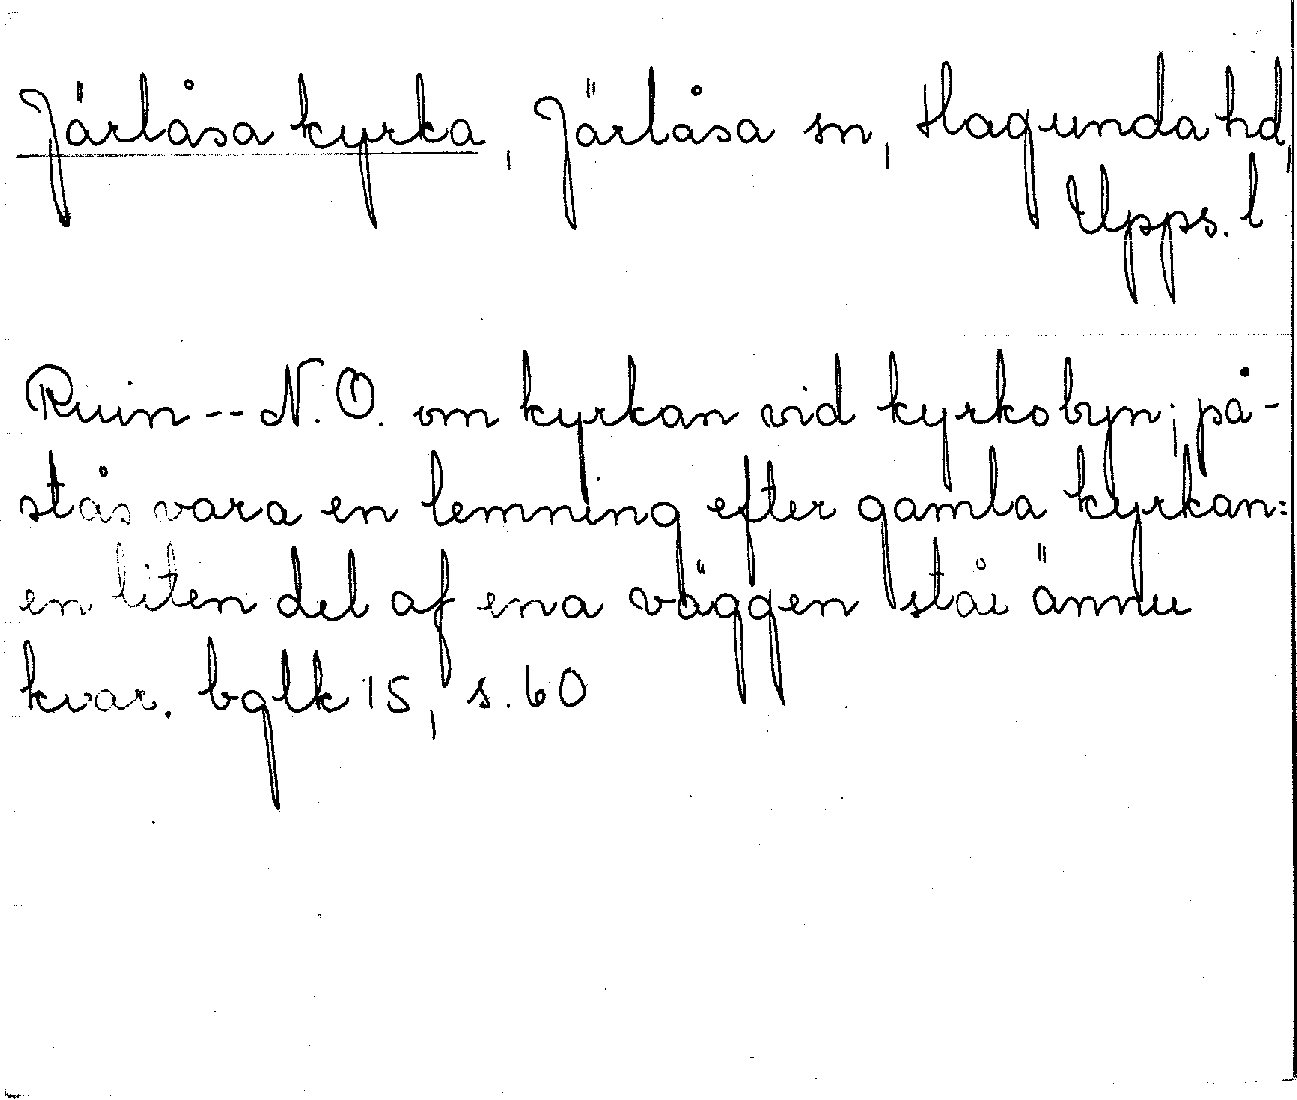 Järlåsa kyrka, Järlåsa sn, Hagunda hd,
Upps. l
Ruin -- N.O. om kyrkan vid kyrkobyn; på-
stås vara en lemning efter gamla kyrkan:
en liten del af ena väggen står ännu
kvar. bglk 15, s. 60